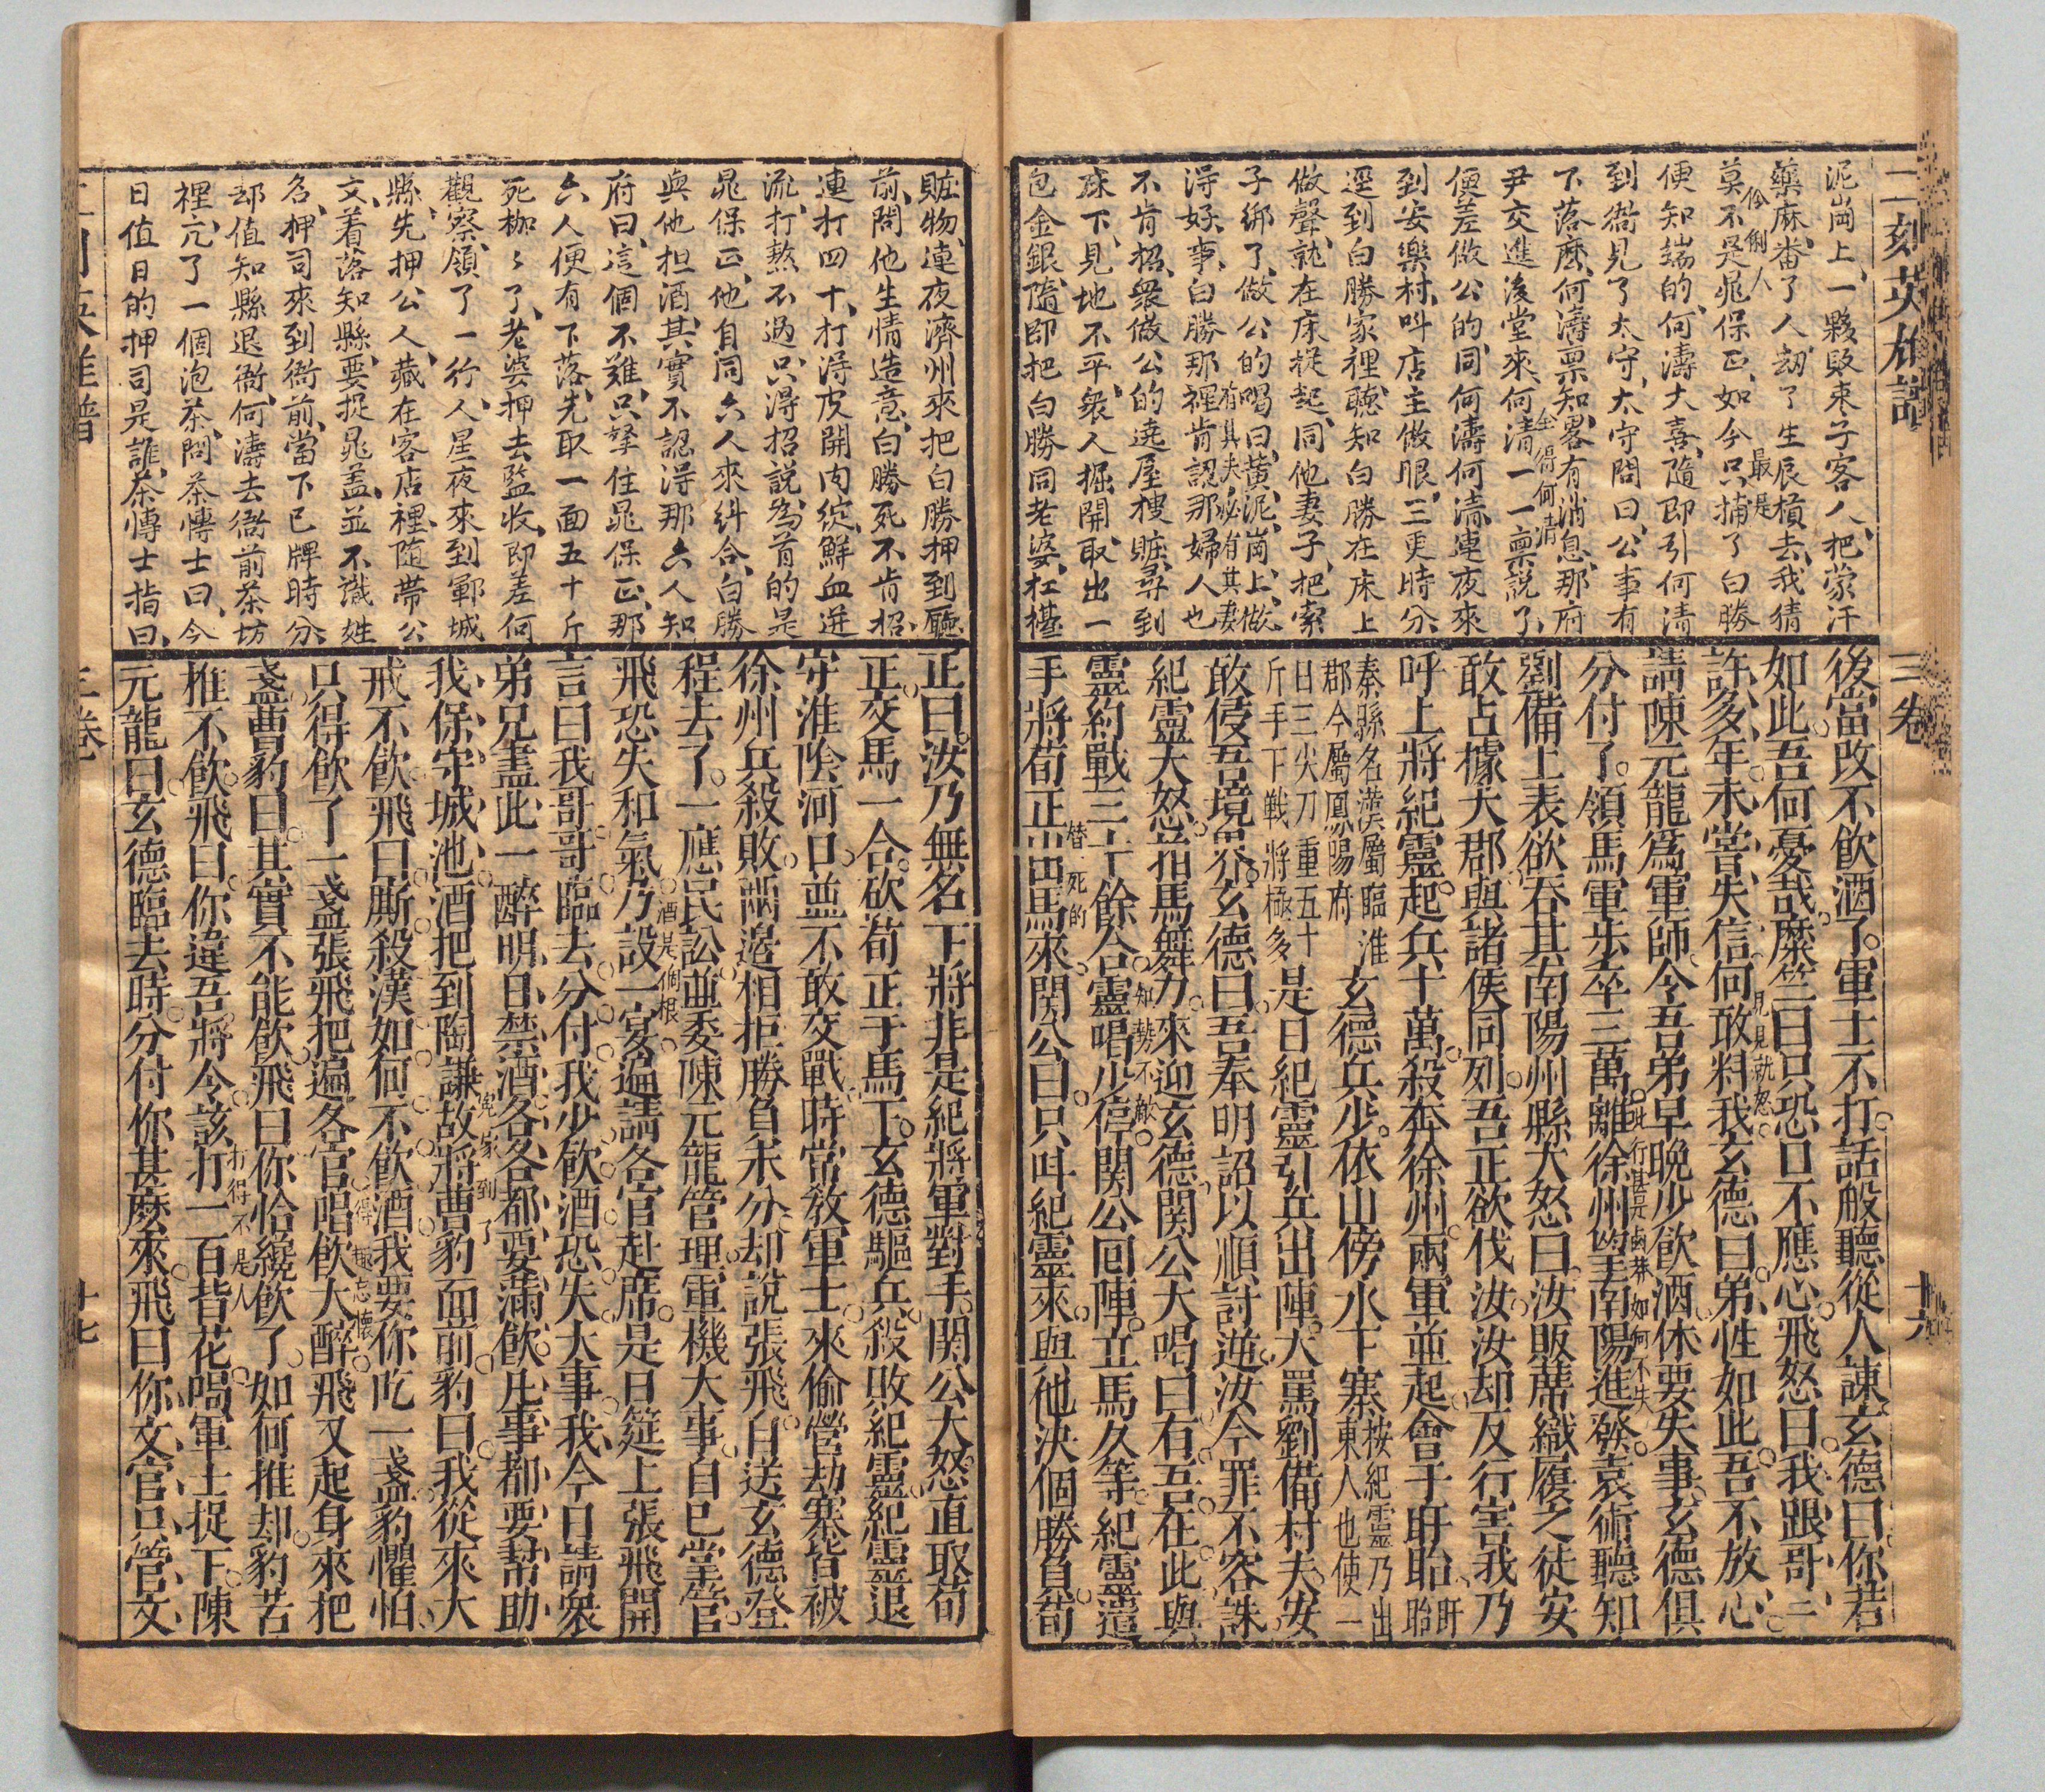 二刻英雄譜
三卷
十六
泥崗上、一夥販枣子客人、把蒙汗
藥麻畨了人、刼了生辰槓去、我猜
伶俐人
最是
莫不是晁保正、如今只捕了白勝
便知端的、何濤大喜、隨即引何清
到衙見了太守、太守問曰、公事有
下落麽、何濤禀知、畧有消息、那府
全得何清
尹交進後堂來、何清一一禀説了、
便差做公的、同何濤何清、連夜來
到安樂村、叫店主做眼、三更時分、
逕到白勝家裡、聽知白勝在床上
做聲、就在床捉起、同他妻子、把索
子綁了、做公的喝曰、黄泥崗上、做
有其夫必有其妻
得好事、白勝那裡肯認、那婦人也
不肯招、衆做公的遶屋樓賍、尋到
床下、見地不平、衆人掘開、取出一
包金銀、隨即把白勝同老婆、扛擡
後當改不飲酒了軍士不打話般聽從人諫玄德曰你若
如此吾何憂哉糜竺曰只恐口不應心飛怒曰我跟哥二
見見就怒
許多年未嘗失信何敢料我玄德曰弟性如此吾不放心
請陳元龍爲軍師令吾弟早晚少飲酒休要失事玄德俱
此行甚是鹵莽如何不失
分付了領馬軍步卒三萬離徐州望南陽進發袁術聽知
劉備上表欲吞其南陽州縣大怒曰汝販蓆織履之徒安
敢占據大郡與諸侯同列吾正欲伐汝汝却反行害我乃
呼上將紀靈起兵十萬殺奔徐州兩軍並起會于盱眙盱眙
秦縣名漢屬臨淮郡今屬鳳陽府玄德兵少依山傍水下寨按紀靈乃出東人也使一
日三尖刀重五十斤手下戰將極多是日紀靈引兵出陣大罵劉備村夫安
敢侵吾境界玄德曰吾奉明詔以順討逆汝今罪不容誅
紀靈大怒㧞馬舞刀來迎玄德関公大喝曰有吾在此與
靈約戰三十餘合靈唱少停関公回陣立馬久等紀靈遣
知勢不敵
手將荀正出馬來関公曰只叫紀靈來與他決個勝負荀
替死的
二刻英雄譜
三卷
十七
賍物、連夜濟州來把白勝押到廳
前、問他生情造意、白勝死不肯招、
連打四十、打得皮開肉綻、鮮血迸
流、打熬不過、只得招説、為首的是
晁保正、他自同六人來糾合、白勝
與他担酒其實不認得那六人、知
府曰、這個不難、只拏住晁保正、那
六人便有下落、先取一面五十斤
死枷、枷了、老婆押去監收、即差何
觀察、領了一行人、星夜來到鄆城
縣、先押公人藏在客店裡、隨帶公
文、着落知縣、要捉晁盖、並不識姓
名、押司來到衙前、當下巳牌時分、
却值知縣退衙、何濤去衙前茶坊
裡、亢了一個泡茶、問茶慱士曰、今
日值日的押司是誰、茶慱士指曰、
正曰汝乃無名下將非是紀將軍對手関公大怒直取荀
正交馬一合砍荀正于馬下玄德驅兵殺敗紀靈紀靈退
守淮隂河口並不敢交戰時常敎軍士來偷營劫寨皆被
徐州兵殺敗兩邉相拒勝負未分却說張飛自送玄德登
程去了一應民訟並委陳元龍管理軍機大事自已掌管
酒是個根
飛恐失和氣乃設一宴遍請各官赴席是日筵上張飛開
言曰我哥哥臨去分付我少飲酒恐失大事我今日請衆
弟兄盡此一醉明日禁酒各各都要滿飲凡事都要幇助
我保守城池酒把到陶謙故將曹豹面前豹曰我從來大
寃家到了
戒不飲飛曰厮殺漢如何不飲酒我要你吃一盞豹懼怕
只得飲了一盞張飛把遍各官唱飲大醉飛又起身來把
得趣忘懷
盞曹豹曰其實不能飲飛曰你恰纔飲了如何推却豹苦
推不飲飛曰你違吾將令該打一百背花喝軍士捉下陳
打得不是人
元龍曰玄德臨去時分付你甚麽來飛曰你文官只管文